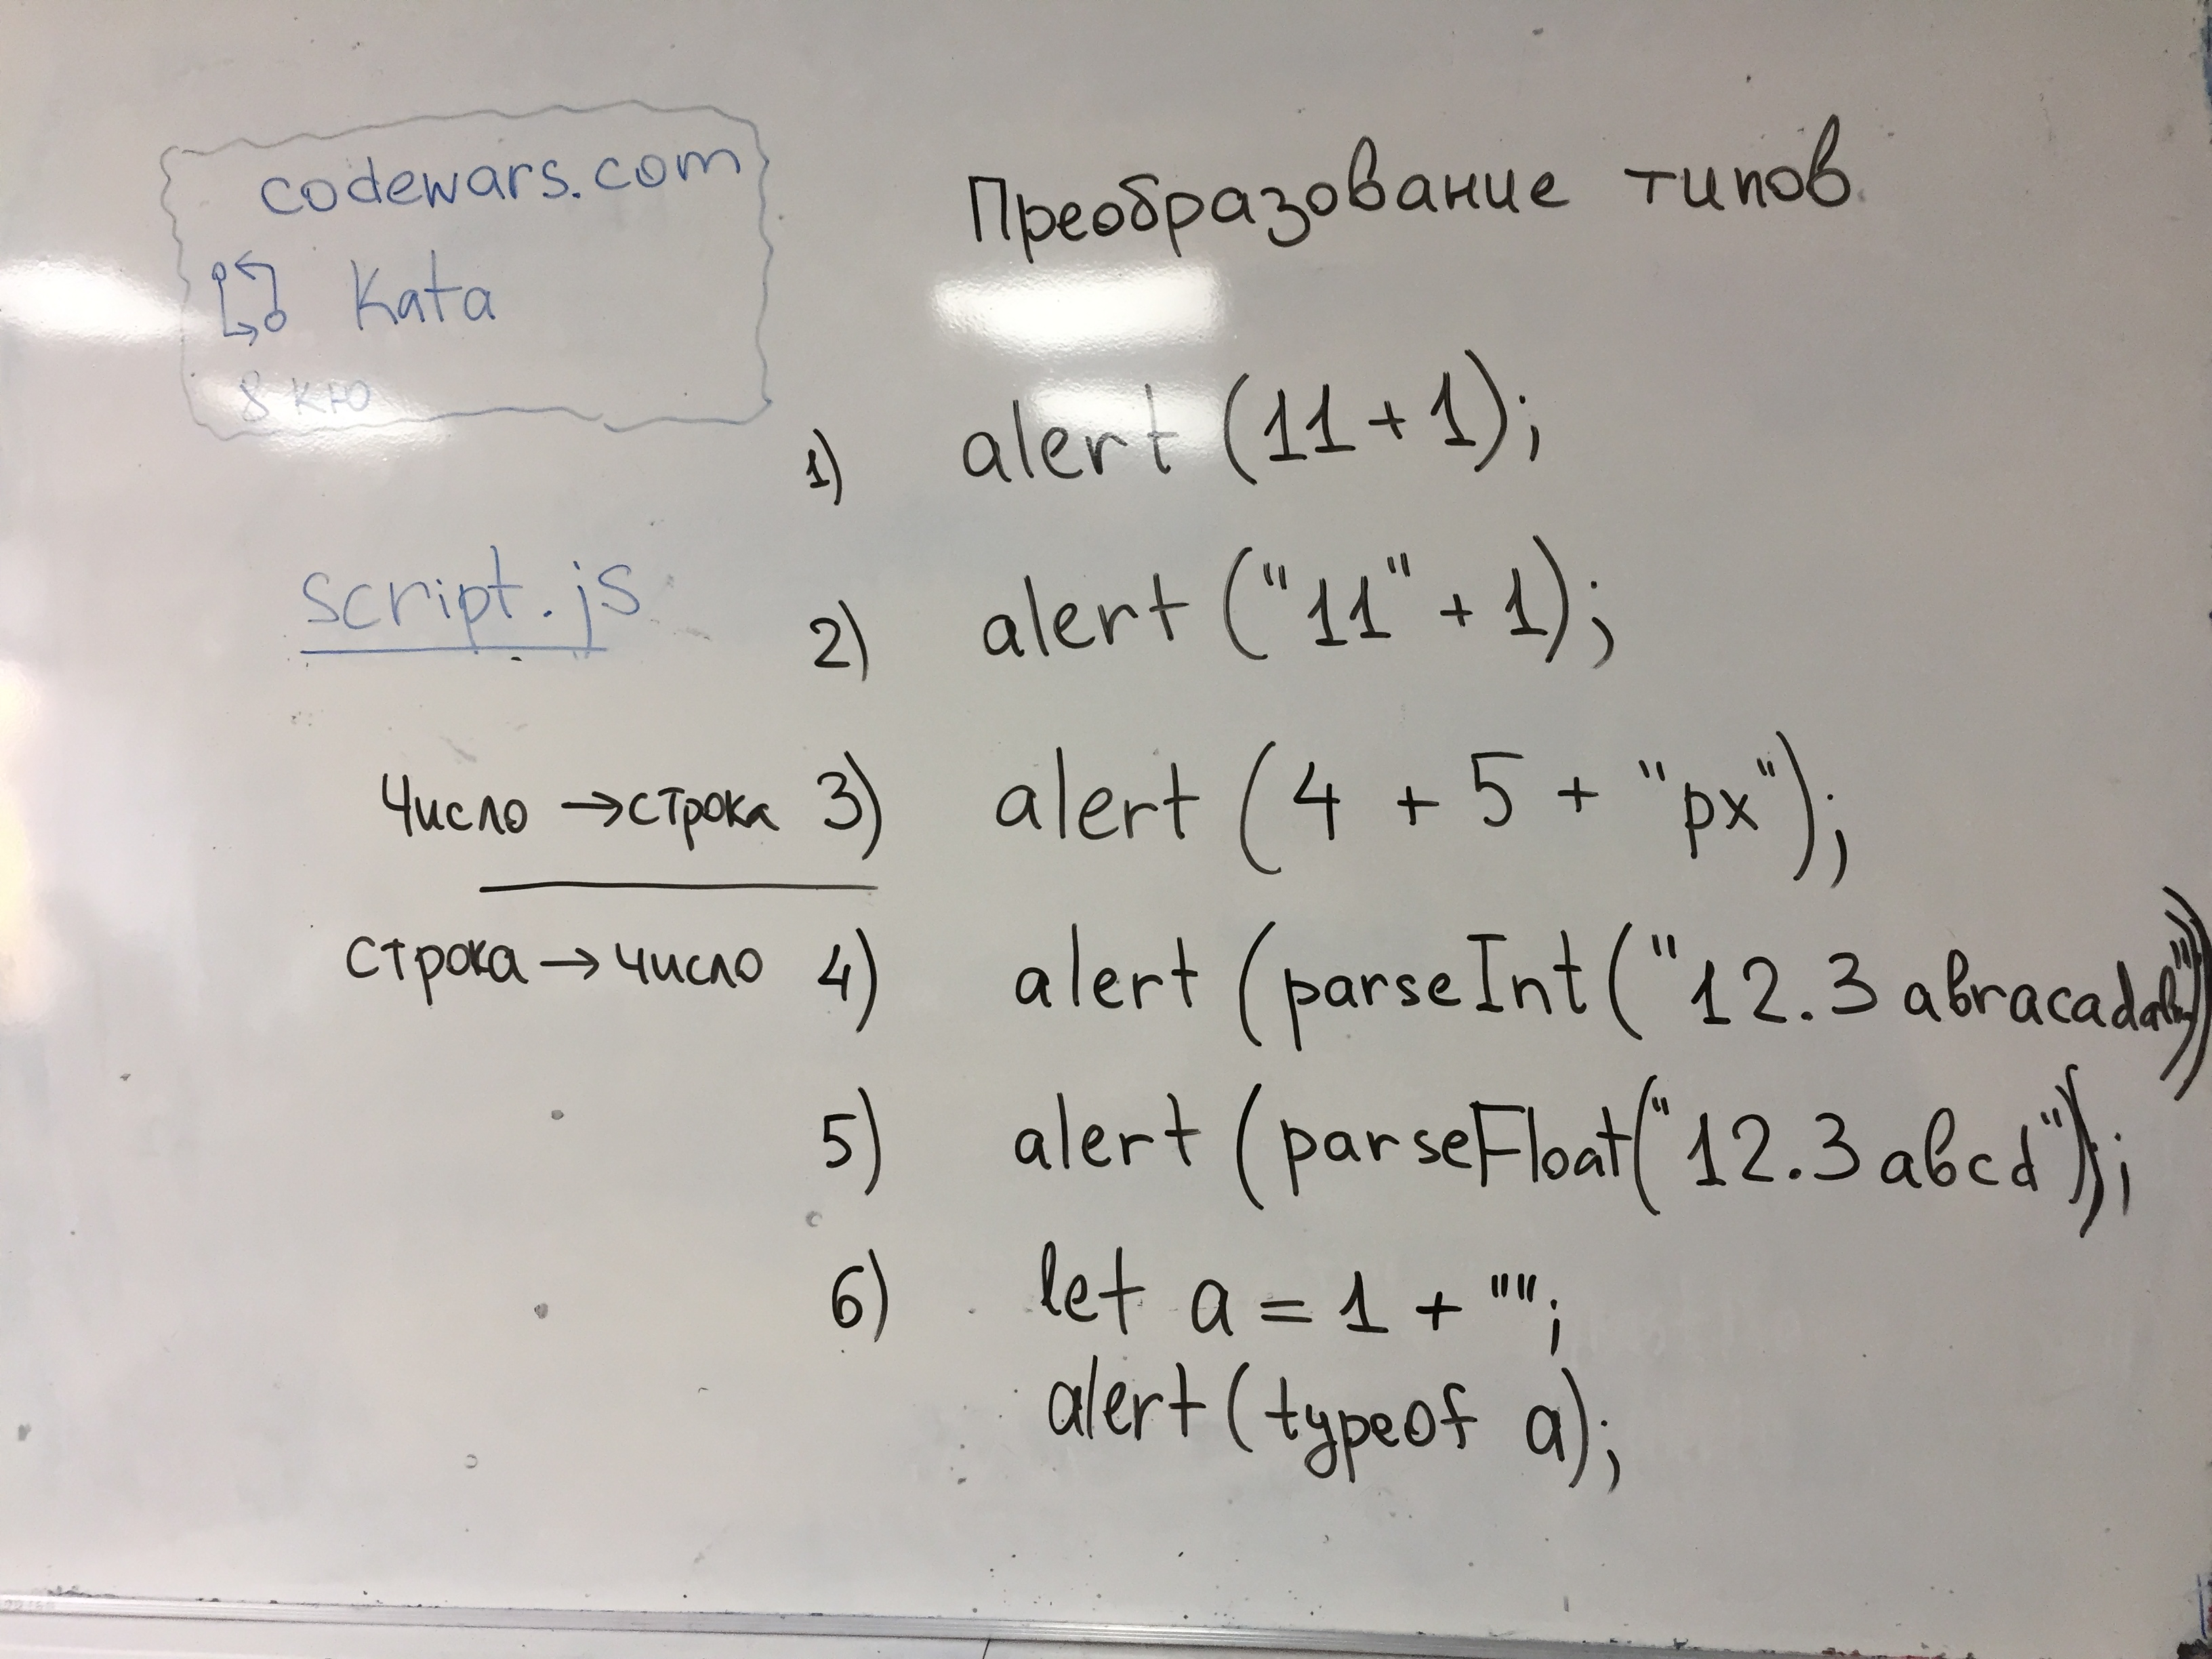 codewars.com
Kata
8 кю
Преобразование типов
1) alert (11 + 1);
script.js
2) alert ("11" + 1);
Число → строка 3) alert (4 + 5 + "px");
строка → число 4) alert (parseInt ("12.3
5) alert (parseFloat("12.3 abcd"));
6) let a = 1 + "";
alert (typeof a);